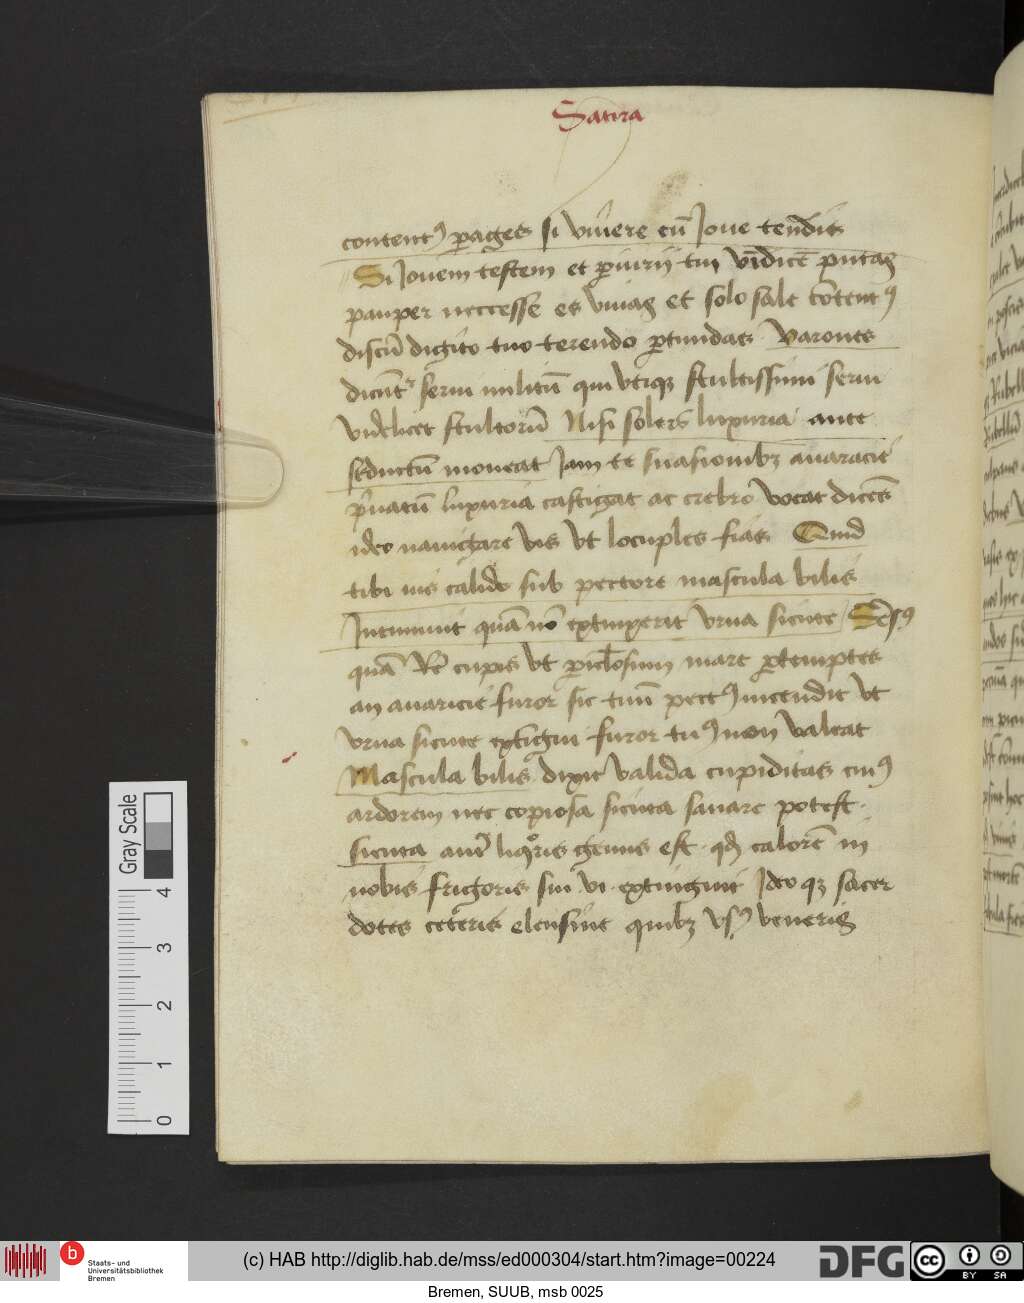 Satira
contentꝰ ꝑages si viuere cū Joue tendis
Si Jouem testem et ꝑiurij tui vīdicē putas
pauper neccesse es viuas et solo sale cōtentꝰ
discū digito tuo terendo ꝑtundas varones
dicūtr serui militū qui vtiqꝫ stultissimi serui
videlicet stultorū Nisi solers luxuria ante
seductū moneat Jam te suasionibꝫ auaracie
pͥuatū luxuria castigat ac crebro vocat dicēs
ideo nauigare vis vt locuples fias Quid
tibi uis calido sub pectore mascula bilis
Intumuit quā nō extinxerit vrna sicute Sesꝰ
quā Re cupis vt ꝑiculosum mare ꝑtemptes
an auaricie furor sic tuū pectꝰ incendit vt
vrna sicute extigui furor tuꝰ non valeat
Mascula bilis dixit valida cupiditas cuiꝰ
ardorem nec copiosa sicuta sanare potest
sicuta autē liqoris genus est qđ calorē in
nobis frigoris sui vi extinguit Ideo qꝫ sacer
dotes ceteris eleusine quibꝫ vsꝰ veneris
Gray Scale
4
3
2
1
0
b
Staats- und
Universitätsbibliothek
Bremen
(c) HAB http://diglib.hab.de/mss/ed000304/start.htm?image=00224
DFG
cc
BY SA
Bremen, SUUB, msb 0025